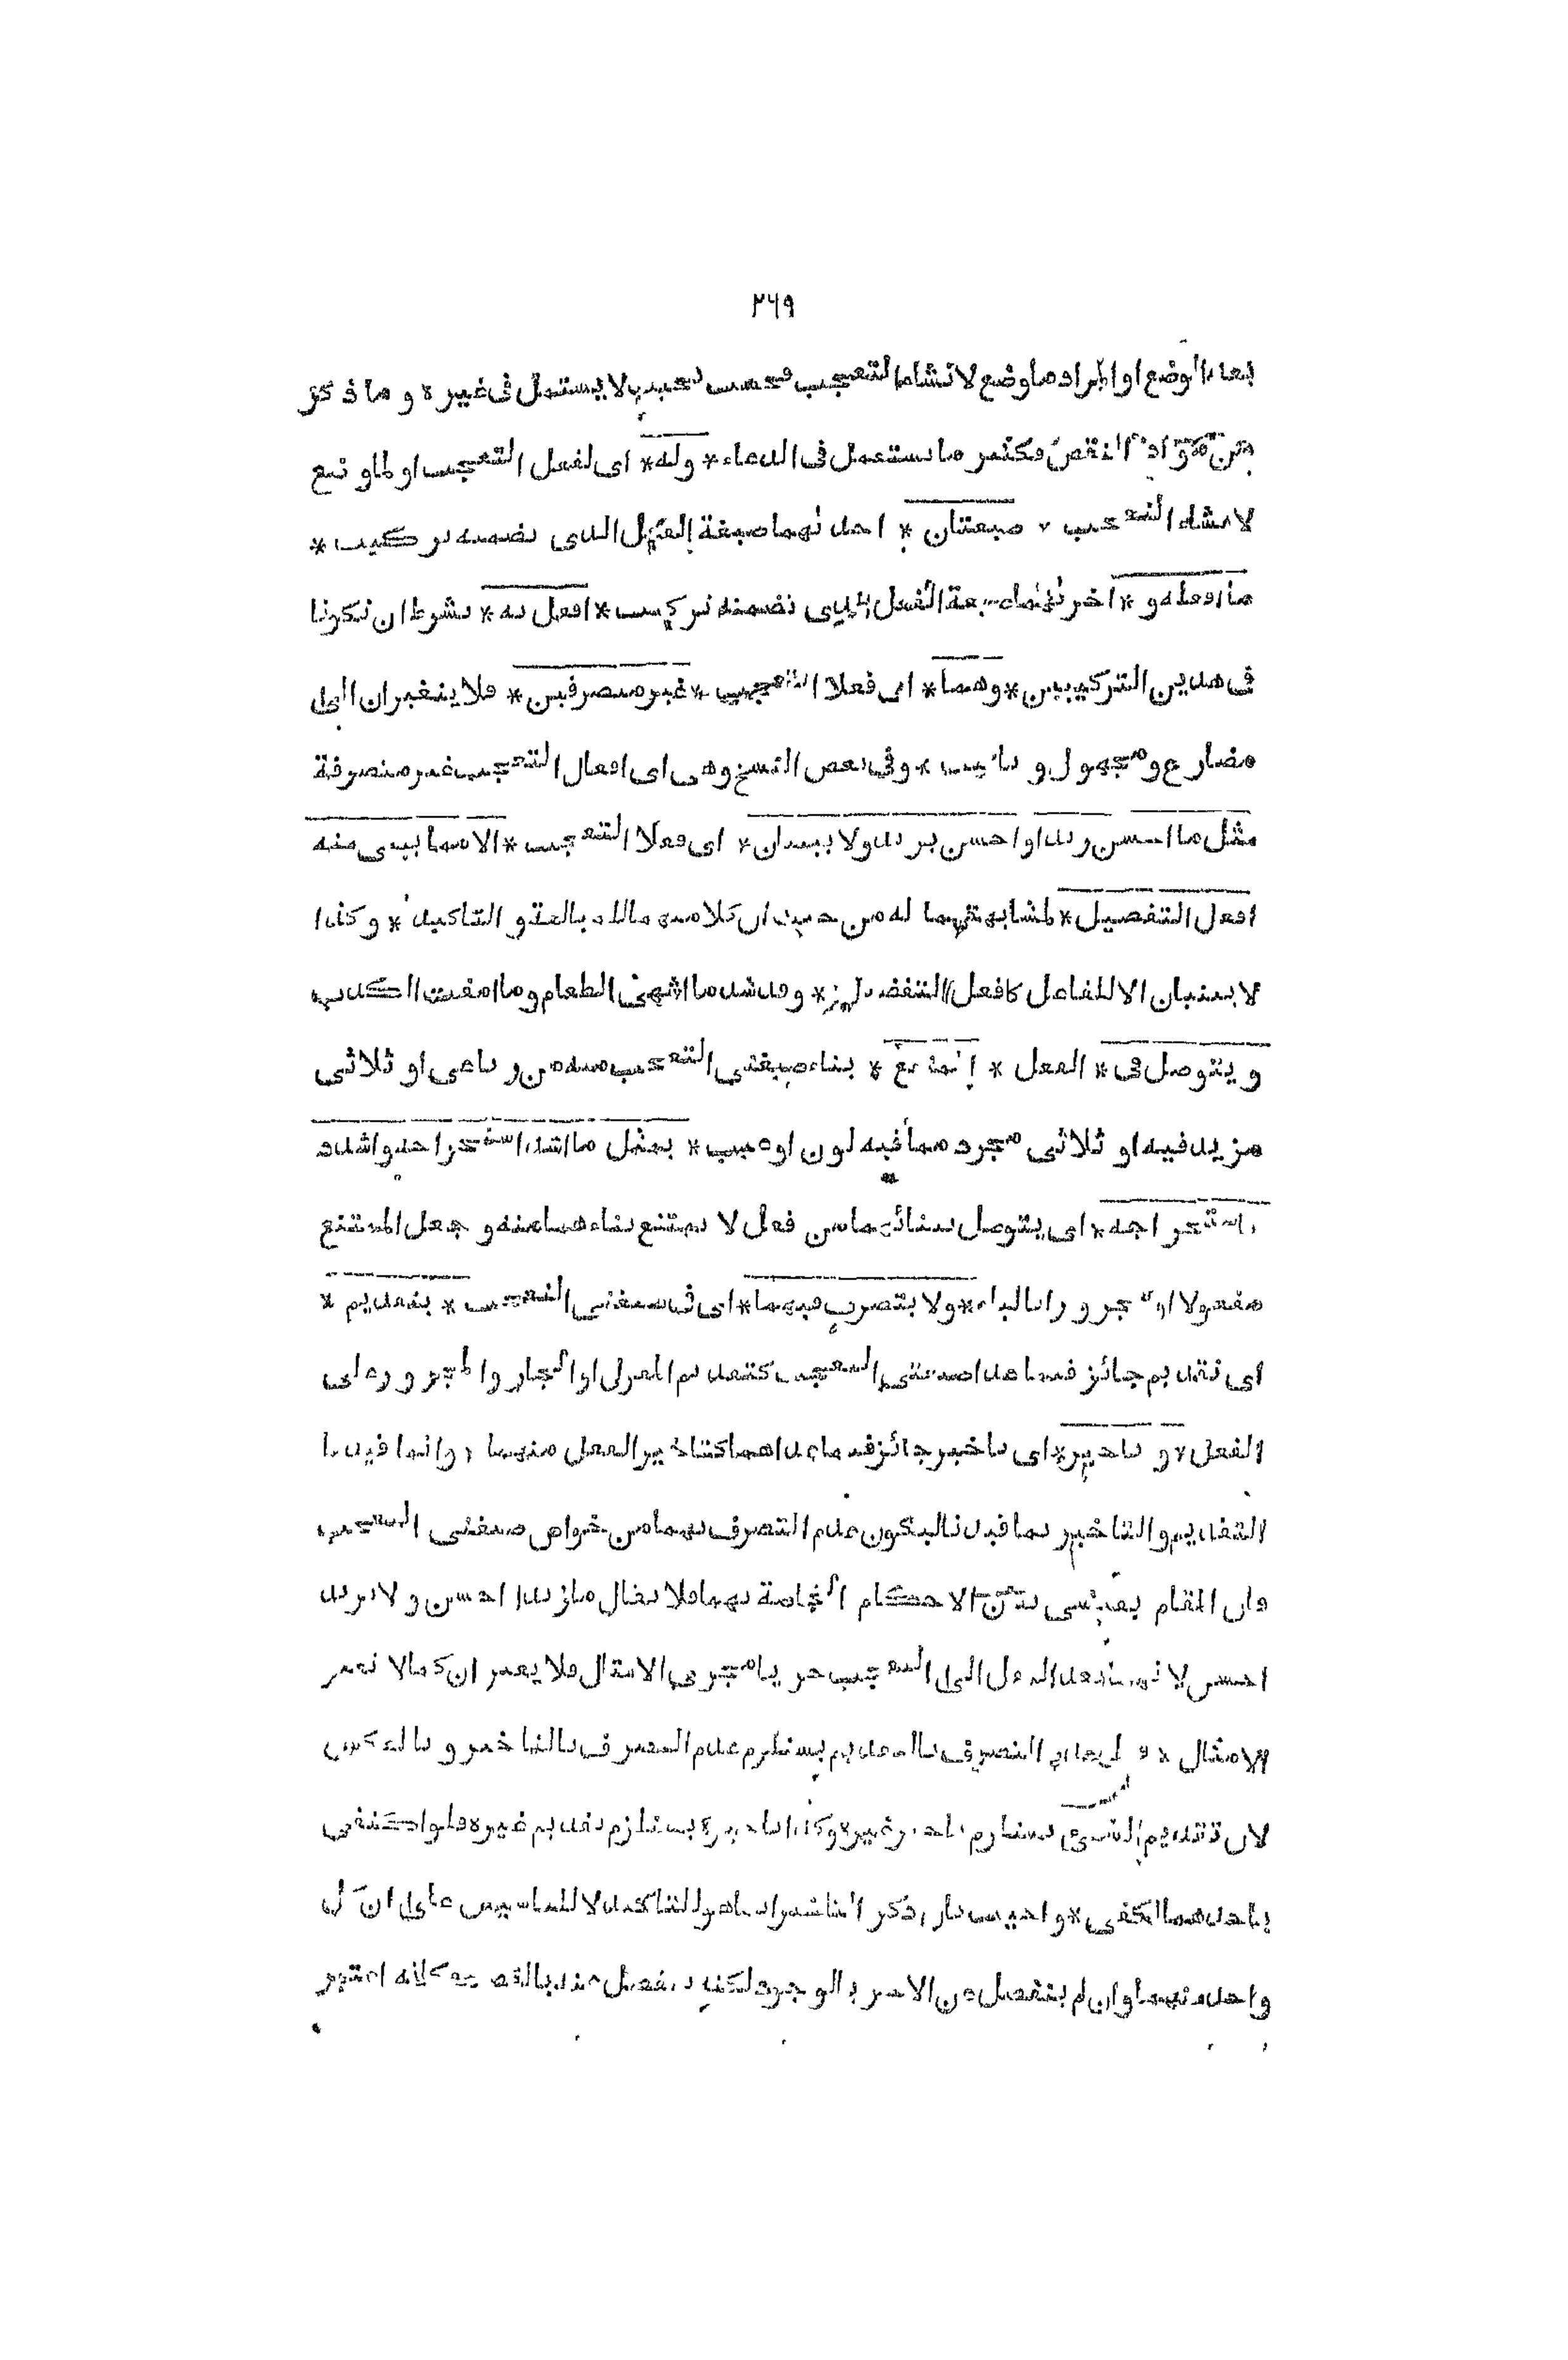 ٣٦٩
بعد الوضع او المراد ما وضع لانشاء التعجب فحسب بحيث لا يستعمل في غيره وما ذكر
من مواد النقض فكثير ما يستعمل في الدعاء * وله * اى لفعل التعجب او لما وضع
لانشاء التعجب * صيغتان * احدلهما صيغة الفعل الذى تضمنه تركيب *
ما افعله و * اخرلهما صيغة الفعل الذى تضمنه تركيب * افعل به * بشرط ان تكونا
في هذين التركيبين * وهما * اى فعلا التعجب * غير متصرفين * فلا يتغيران الى
مضارع ومجهول و تانيث * وفي بعض النسخ وهى اى افعال التعجب غير متصرفة
مثل ما احسن زيدا واحسن بزيد ولا يبنيان * اى فعلا التعجب * الا مما يبنى منه
افعل التفضيل * لمشابهتهما له من حيث ان كلا منهما للمبالغة و التاكيد * وكذا
لا يبنيان الا للفاعل كافعل التفضيل * وقد شذ ما اشهى الطعام وما امقت الكذب
و يتوصل فى * الفعل * الممتنع * بناء صيغتى التعجب منه من رباعى او ثلاثى
مزيد فيه او ثلاثى مجرد مما فيه لون او عيب * بمثل ما اشد استخراجه واشدد
باستخراجه * اى يتوصل ببنائهما من فعل لا يمتنع بناءهما منه و جعل الممتنع
مفعولا او مجرورا بالباء * ولا يتصرف فيهما * اى فى صيغتى التعجب * بتقديم *
اى تقديم جائز فيما عدا صيغتى التعجب كتقديم المفعول او الجار والمجرور على
الفعل * و تاخير * اى تاخير جائز فيما عداهما كتاخير الفعل منهما وانما قيدنا
التقديم والتاخير بما قيدنا ليكون عدم التصرف بهما من خواص صيغتى التعجب
فان المقام يقتضى بيان الاحكام الخاصة بهما فلا يقال ما زيدا احسن و لا بزيد
احسن لانهما بعد النقل الى التعجب جريا مجرى الامثال فلا يغيران كما لا تغير
الامثال * لعدم التصرف بالتقديم يستلزم عدم التصرف بالتاخير و بالعكس
لان تقديم الشىء يستلزم تاخير غيره وكذا تاخيره يستلزم تقديم غيره فلو اكتفى
باحدهما لكفى * و اجيب بان ذكر التاخير انما هو للتاكيد لا للتاسيس على ان كل
واحد منهما وان لم ينفصل عن الاخر بالوجود لكنه ينفصل عنه بالقصد فكانه اعتبر